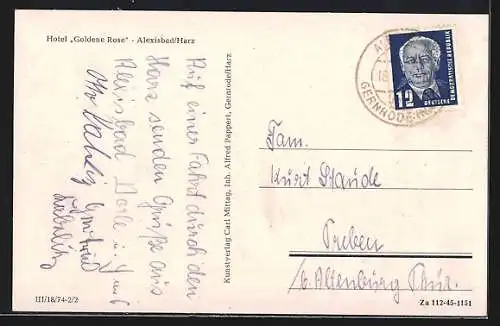 Hotel „Goldene Rose" - Alexisbad/Harz
Auf einer Fahrt durch den
Harz senden Grüße aus
Alexisbad
III/18/74-2/2
Kunstverlag Carl Mittag, Inh. Alfred Pappert, Gernrode/Harz
GERNRODE
12
DEUTSCHE
DEMOKRATISCHE REPUBLIK
Fam.
Kurt Staude
Treben
b. Altenburg Thür.
Za 112-45-1151